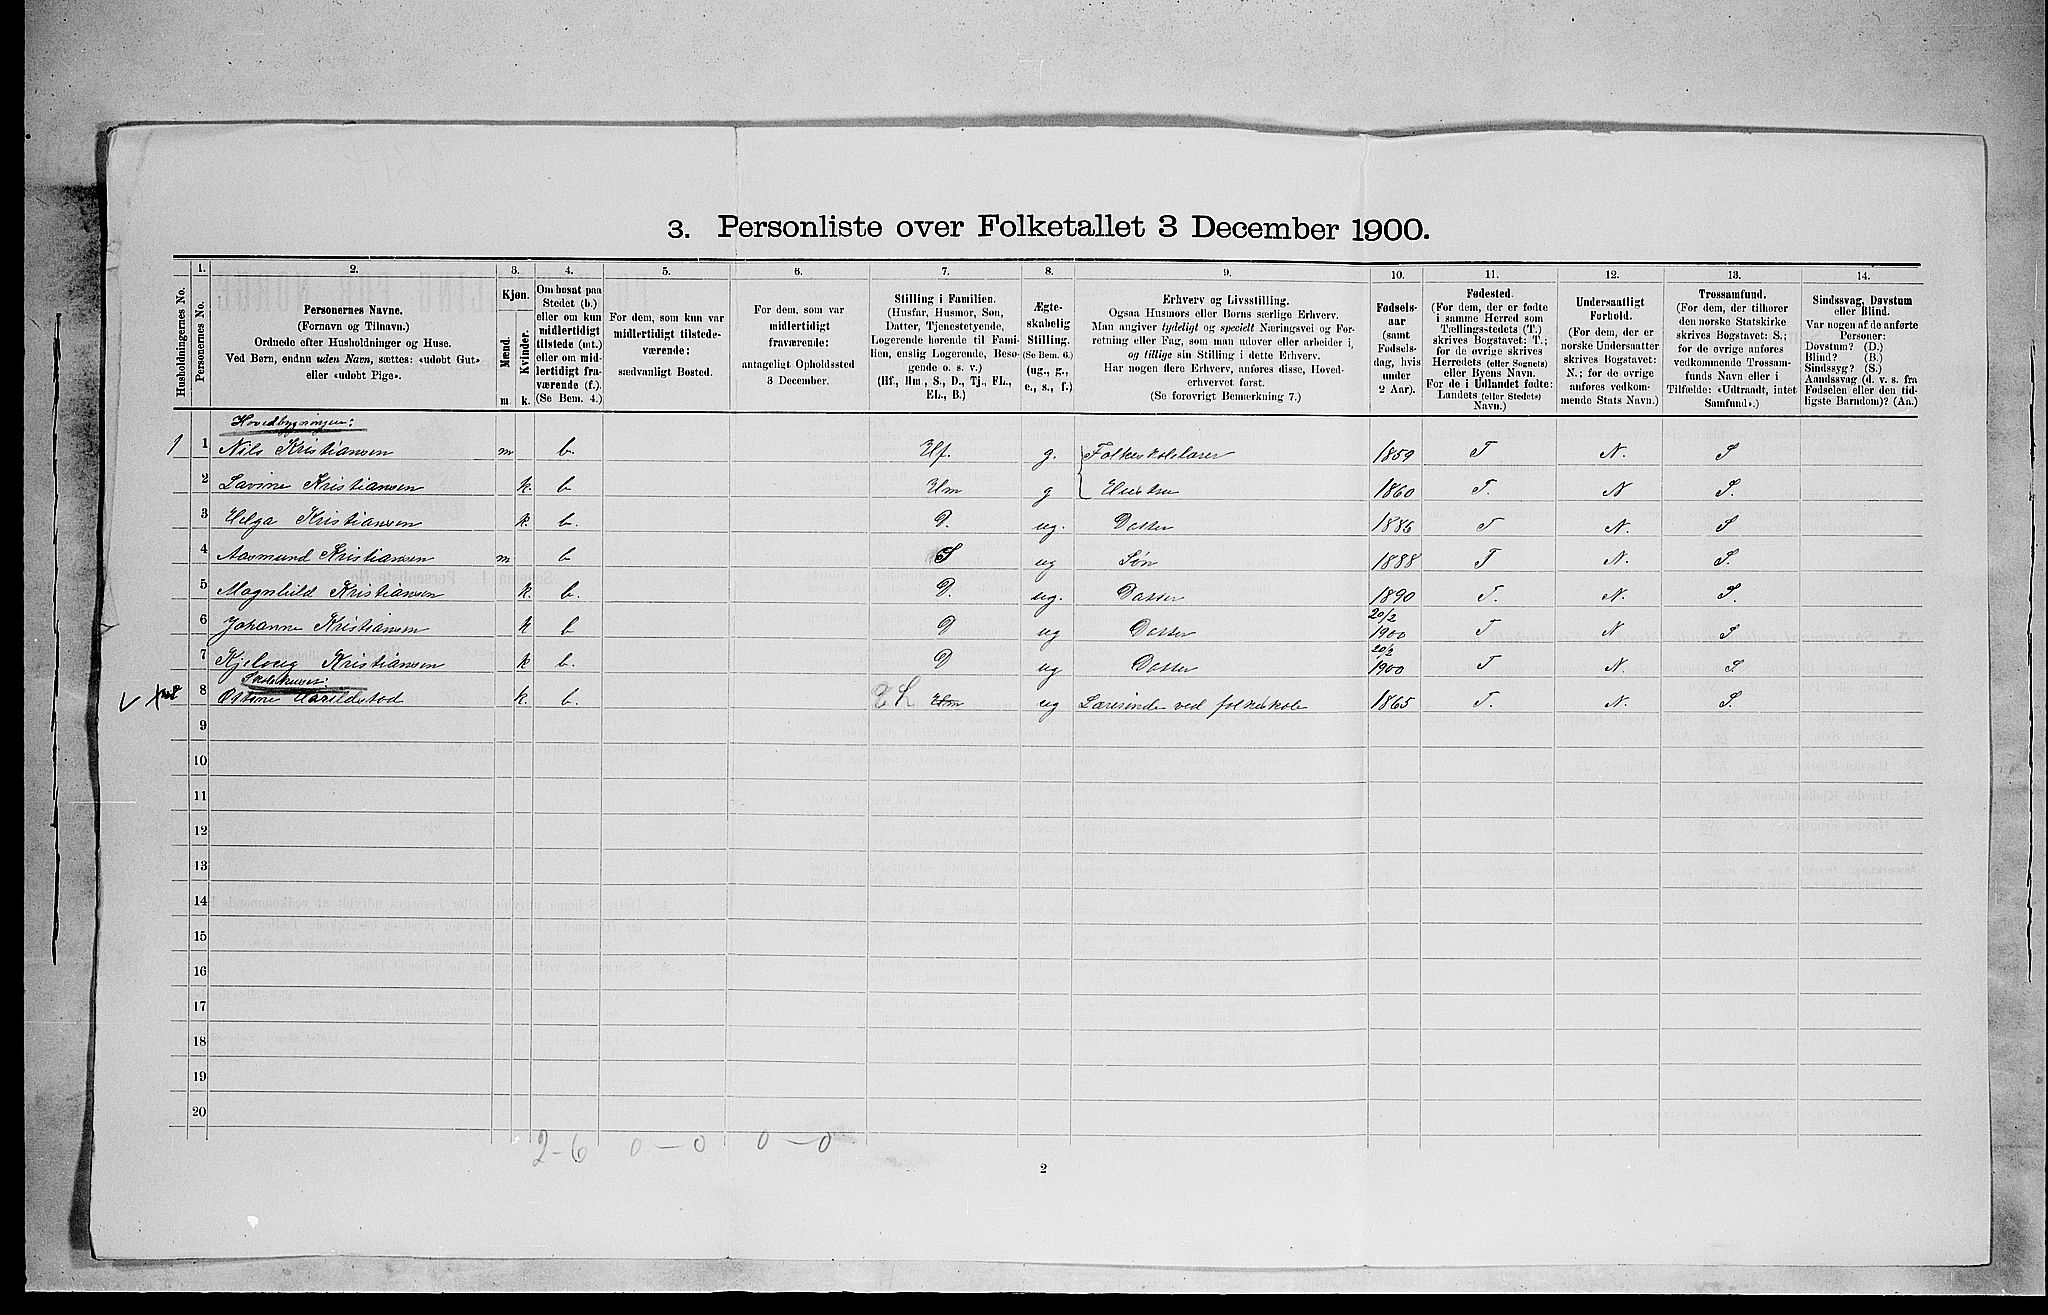 3. Personliste over Folketallet 3 December 1900.
Husholdningernes No.
1.
Personernes No.
2.
Personernes Navne.
(Fornavn og Tilnavn.)
Ordnede efter Husholdninger og Huse.
Ved Børn, endnu uden Navn, sættes: «udøbt Gut»
eller «udøbt Pige».
3.
Kjøn.
Mænd.
Kvinder.
m.
k.
4.
Om bosat paa
Stedet (b.)
eller om kun
midlertidigt
tilstede (mt.)
eller om mid-
lertidigt fra-
værende (f.).
(Se Bem. 4.)
5.
For dem, som kun var
midlertidigt tilstede-
værende:
sædvanligt Bosted.
6.
For dem, som var
midlertidigt
fraværende:
antageligt Opholdssted
3 December.
7.
Stilling i Familien.
(Husfar, Husmor, Søn,
Datter, Tjenestetyende,
Logerende hørende til Fami-
lien, enslig Logerende, Besø-
gende o. s. v.)
(Hf., Hm., S., D., Tj., FL.,
EL., B.)
8.
Ægte-
skabelig
Stilling.
(Se Bem. 6.)
(ug., g.,
e., s., f.)
9.
Erhverv og Livsstilling.
Ogsaa Husmors eller Børns særlige Erhverv.
Man angiver tydeligt og specielt Næringsvei og For-
retning eller Fag, som man udøver eller arbeider i,
og tillige sin Stilling i dette Erhverv.
Har nogen flere Erhverv, anføres disse, Hoved-
erhvervet først.
(Se forøvrigt Bemærkning 7.)
10.
Fødsels-
aar
(samt
Fødsels-
dag, hvis
under
2 Aar).
11.
Fødested.
(For dem, der er fødte
i samme Herred som
Tællingsstedets (T.)
skrives Bogstavet: T.;
for de øvrige skrives
Herredets (eller Sognets)
eller Byens Navn.
For de i Udlandet fødte:
Landets (eller Stedets)
Navn.)
12.
Undersaatligt
Forhold.
(For dem, der er
norske Undersaatter
skrives Bogstavet:
N.; for de øvrige
anføres vedkom-
mende Stats Navn.)
13.
Trossamfund.
(For dem, der tilhører
den norske Statskirke
skrives Bogstavet: S.;
for de øvrige anføres
vedkommende Trossam-
funds Navn eller i
Tilfælde: «Udtraadt, intet
Samfund».)
14.
Sindssvag, Døvstum
eller Blind.
Var nogen af de anførte
Personer:
Døvstum? (D.)
Blind? (B.)
Sindssyg? (S.)
Aandssvag (d. v. s. fra
Fødselen eller den tid-
ligste Barndom)? (Aa.)
Hovedbygningen:
1 1 Nils Kristiansen m b. Hf. g. Folkeskolelærer 1859 T N. S
2 Lavine Kristiansen k. b Hm g Hustru 1860 T. N S.
3 Helga Kristiansen k. b. D. ug. Datter 1886 T N. S
4 Aasmund Kristiansen m b S ug Søn 1888 T N. S.
5 Magnhild Kristiansen k. b. D. ug. Datter 1890 T. N. S.
6 Johanne Kristiansen k b D ug Datter 20/2 1900 T N S
7 Kjelveig Kristiansen k b. D ug Datter 20/2 1900 T N. S.
Skolehuset:
8 Ostine Harildstad k. b. EL Hm ug Lærerinde ved folkeskole 1865 T. N. S.
9
10
11
12
13
14
15
16
17
18
19
20
2-6 0-0 0-0
2